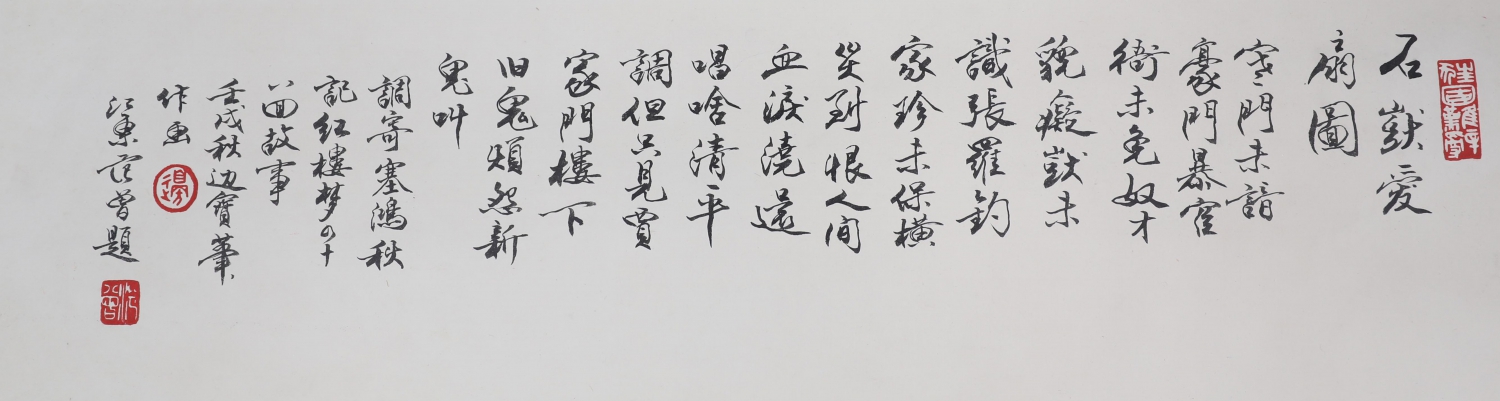 石獃愛
扇圖
寒門未諳
豪門暴官
衙未免奴才
貌癡獃未
識張羅釣
家珍未保橫
災到恨人间
血淚澆還
唱啥清平
調但只見賈
家門樓下
旧鬼煩怨新
鬼叫
調寄塞鴻秋
記红樓梦四十
八回故事
壬戌秋边寶華
作画
江東范曾題